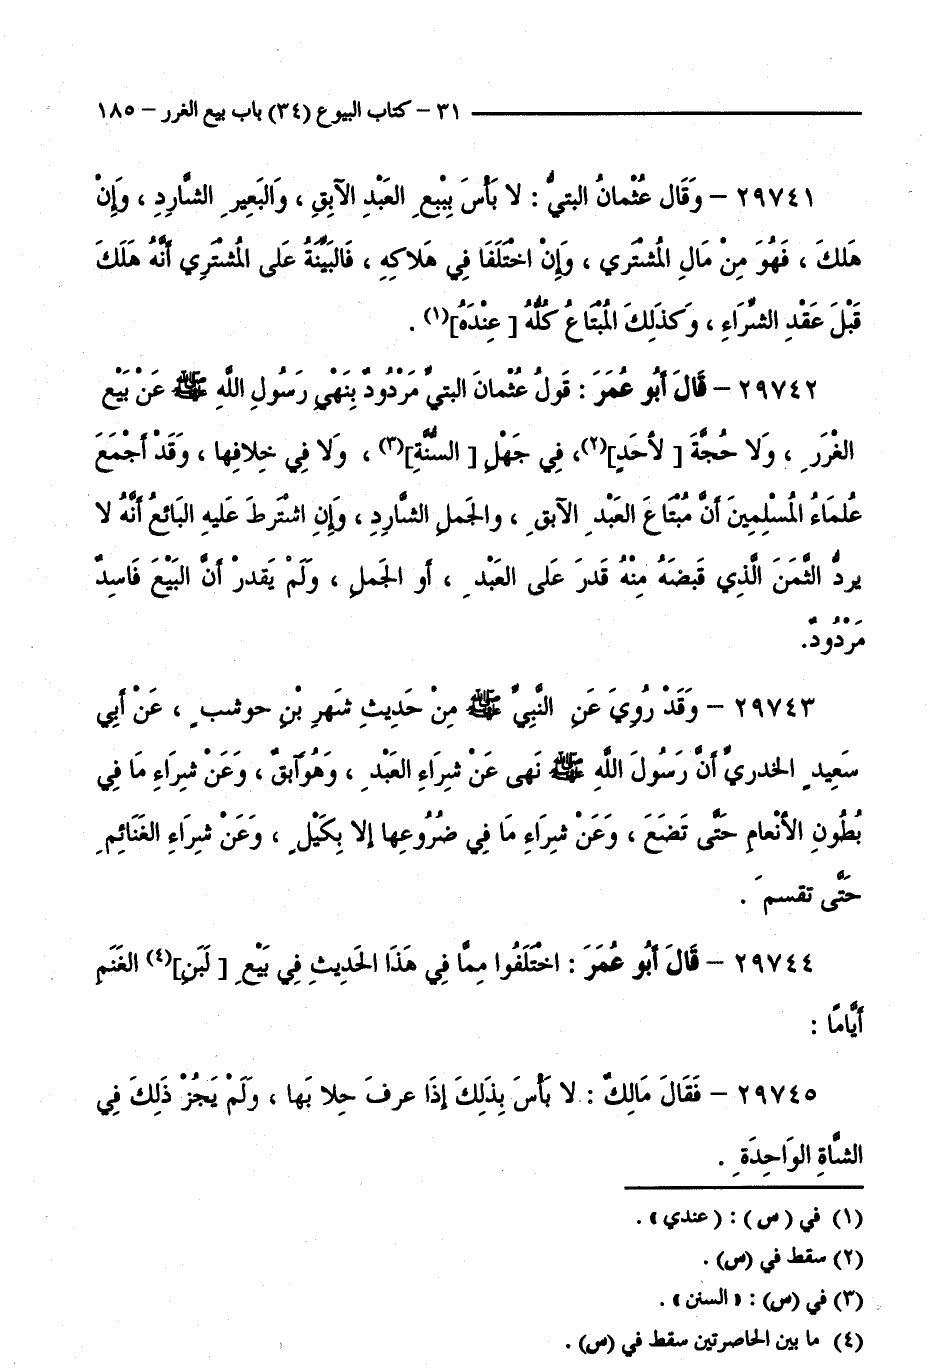 ٣١ – كتاب البيوع (٣٤) باب بيع الغرر – ١٨٥
٢٩٧٤١ – وَقَال عُثْمانُ البتيُّ : لا بَأْسَ بِبْيعِ العَبْدِ الآبِقِ ، وَالبَعِيرِ الشَّارِدِ ، وَإِنْ
هَلكَ ، فَهُوَ مِنْ مَالِ الْمُشْتَري ، وَإِنْ اخْتَلَفَا فِي هَلاكِهِ ، فَالبَيِّنَةُ عَلى الْمُشْتَرِي أَنَّهُ هَلَكَ
قَبْلَ عَقْدِ الشِّرَاءِ ، وَكذَلِكَ الْمُبْتَاعُ كُلُّهُ [ عِنْدَهُ](١) .
٢٩٧٤٢ – قَالَ أَبُو عُمَرَ : قَولُ عُثْمانَ البتيِّ مَرْدُودٌ بِنَهْيِ رَسُولِ اللَّهِ ﷺ عَنْ بَيْعِ
الغْرَرِ ، وَلا حُجَّةَ [ لأحَدٍ](٢)، فِي جَهْلِ [ السنَّةِ](٣) ، وَلا فِي خِلافِها ، وَقَدْ أجْمَعَ
عُلمَاءُ الْمُسْلِمِينَ أَنَّ مُبْتَاعَ العَبْدِ الآبقِ ، والجَملِ الشَّارِدِ ، وَإِنِ اشْتَرطَ عَليهِ البَائعُ أَنَّهُ لا
يردُّ الثَّمَنَ الَّذِي قَبضَهُ مِنْهُ قَدرَ عَلى العَبْدِ ، أو الجَملِ ، وَلَمْ يَقدرْ أَنَّ البَيْعَ فَاسِدٌ
مَرْدُودٌ.
٢٩٧٤٣ – وَقَدْ رُوِيَ عَنِ النَّبِيِّ ﷺ مِنْ حَدِيثِ شَهرِ بْنِ حوشبٍ ، عَنْ أَبِي
سَعِيدٍ الخدريِّ أَنَّ رَسُولَ اللَّهِ ﷺ نَهى عَنْ شِرَاءِ العَبْدِ ، وَهُوَ آبقٌ ، وَعَنْ شِرَاءِ مَا فِي
بُطُونِ الأنْعامِ حَتَّى تَضَعَ ، وَعَنْ شِرَاءِ مَا فِي ضُرُوعِها إلا بِكَيْلٍ ، وَعَنْ شِرَاءِ الغَنَائمِ
حَتَّى تقسمَ .
٢٩٧٤٤ – قَالَ أَبُو عُمَرَ : اخْتَلَفُوا مِمَّا فِي هَذَا الحَدِيثِ فِي بَيْعِ [ لَبَنِ](٤) الغَنَمِ
أَيَّامًا :
٢٩٧٤٥ – فَقَالَ مَالِكٌ : لا بَأْسَ بِذَلِكَ إذَا عرفَ حلا بَها ، وَلَمْ يَجُزْ ذَلِكَ فِي
الشَّاةِ الوَاحِدَةِ .
(١) في (س) : (عندي» .
(٢) سقط في (س) .
(٣) في (س) : «السنن» .
(٤) ما بين الحاصرتين سقط في (س) .